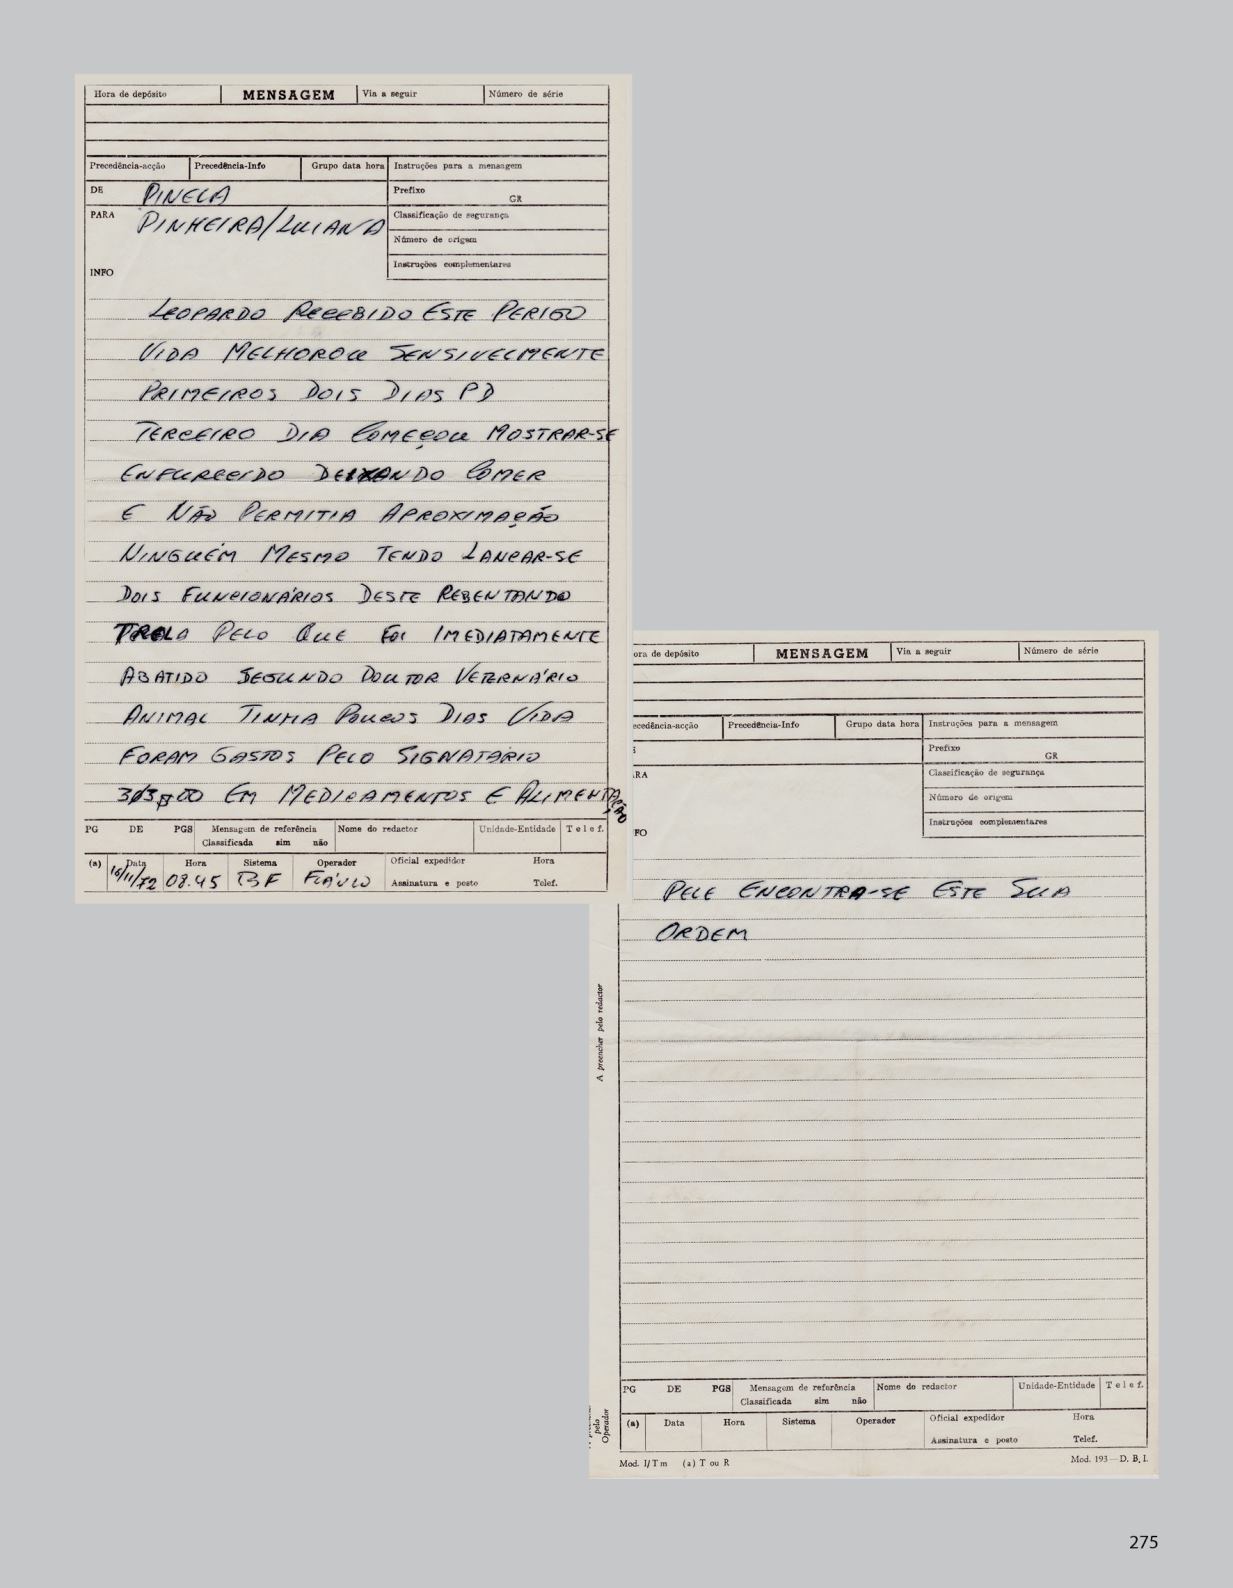 Hora de depósito MENSAGEM Via a seguir Número de série
Precedência-acção Precedência-Info Grupo data hora Instruções para a mensagem
DE PINELA Prefixo GR
PARA PINHEIRA/LUIANA Classificação de segurança
Número de origem
INFO Instruções complementares
LEOPARDO RECEBIDO ESTE PERIGO
VIDA MELHOROU SENSIVELMENTE
PRIMEIROS DOIS DIAS PD
TERCEIRO DIA COMEÇOU MOSTRAR-SE
ENFURECIDO DEIXANDO COMER
E NÃO PERMITIA APROXIMAÇÃO
NINGUÉM MESMO TENDO LANCAR-SE
DOIS FUNCIONÁRIOS DESTE REBENTANDO
TRELA PELO QUE FOI IMEDIATAMENTE
ABATIDO SEGUNDO DOUTOR VETERNÁRIO
ANIMAL TINHA POUCOS DIAS VIDA
FORAM GASTOS PELO SIGNATÁRIO
EM MEDICAMENTOS E ALIMENTAÇÃO
PG DE PGS Mensagem de referência Nome do redactor Unidade-Entidade Telef.
Classificada sim não
(a) Data Hora Sistema Operador Oficial expedidor Hora
16/11/72 08.45 BF FLÁVIO Assinatura e posto Telef.
ora de depósito MENSAGEM Via a seguir Número de série
ecedência-acção Precedência-Info Grupo data hora Instruções para a mensagem
Prefixo GR
RA Classificação de segurança
Número de origem
FO Instruções complementares
PELE ENCONTRA-SE ESTE SUA
ORDEM
A preencher pelo redactor
PG DE PGS Mensagem de referência Nome do redactor Unidade-Entidade Telef.
Classificada sim não
pelo Operador
(a) Data Hora Sistema Operador Oficial expedidor Hora
Assinatura e posto Telef.
Mod. I/Tm (a) T ou R Mod. 193 — D. B. I.
275